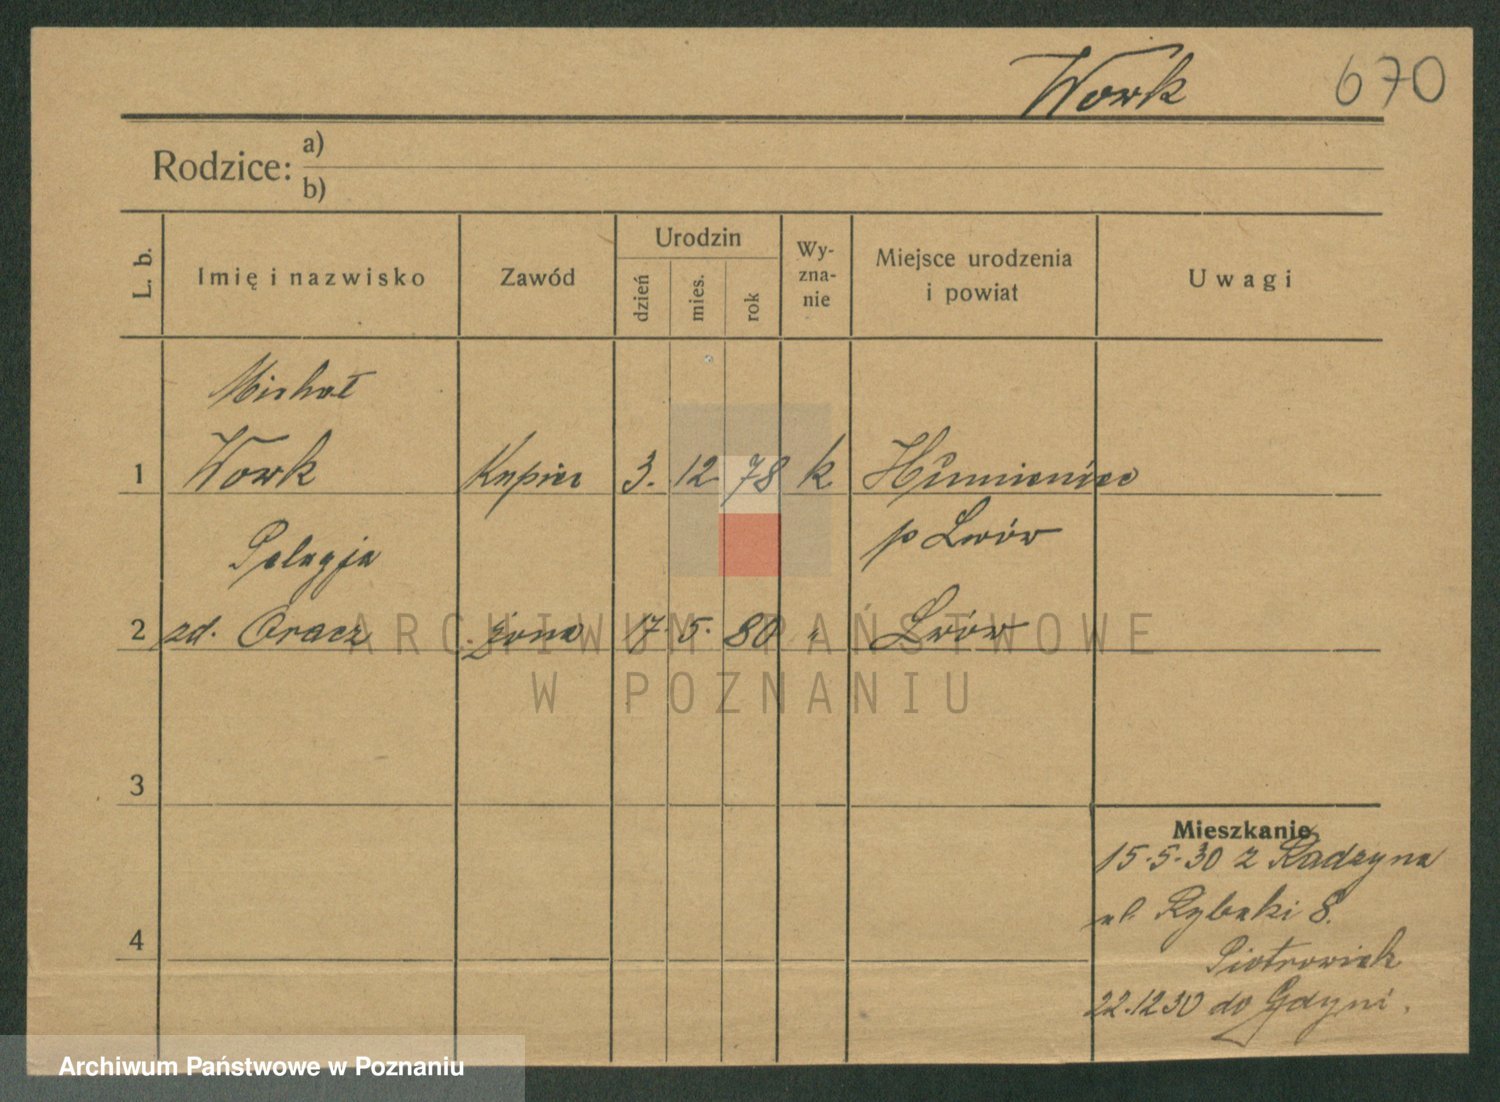 Work 670
Rodzice: a)
b)
L. b. Imię i nazwisko Zawód Urodzin dzień mies. rok Wy-zna-nie Miejsce urodzenia i powiat Uwagi
Michał
1 Work Kupiec 3. 12 78 k Humieniec
p Lwów
Pelagja
2 zd. Oracz żona 17. 5. 80 " Lwów
ARCHIWUM PAŃSTWOWE
W POZNANIU
3
Mieszkanie
15.5.30 z Radzyna
ul. Rybaki 8.
4 Piotrowiak
22.12.30 do Gdyni.
Archiwum Państwowe w Poznaniu